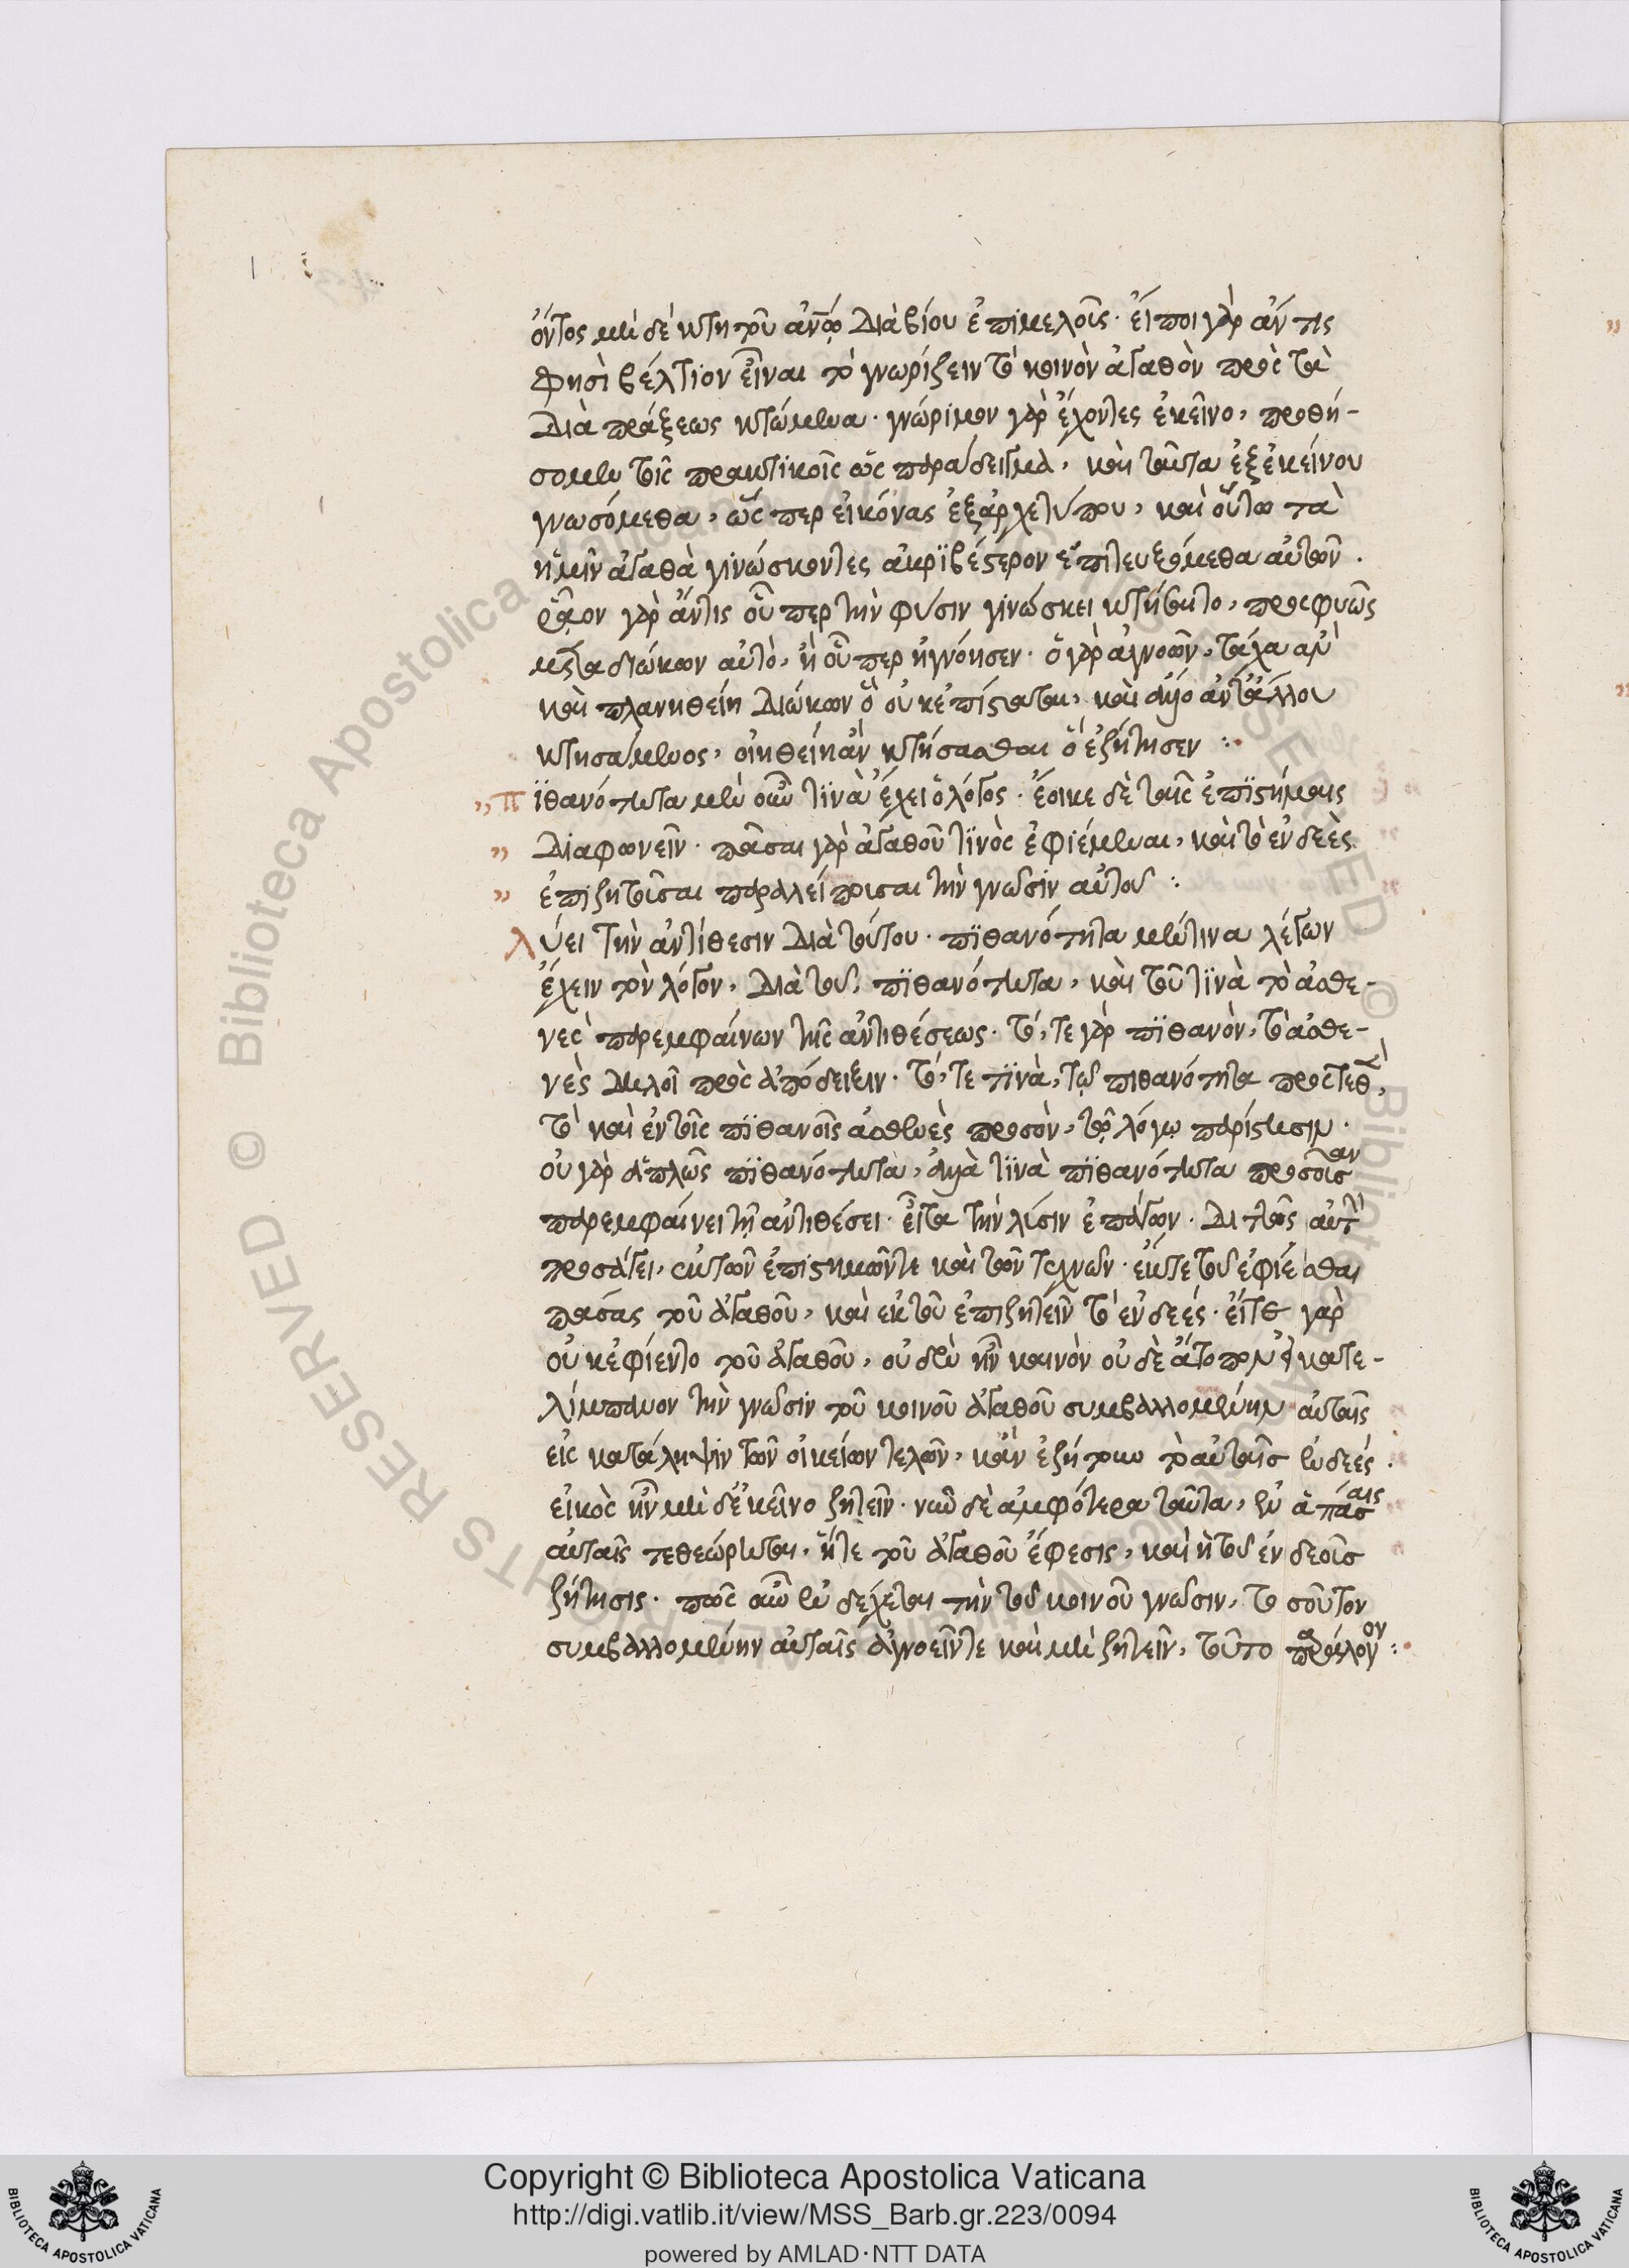 ὄντος μὴ δὲ κτητοῦ ἀνθρώπῳ διὰ βίου ἐπιμελοῦς· εἴποι γὰρ ἄν τις
φησὶ βέλτϊον εἶναι τὸ γνωρίζειν τὸ κοινὸν ἀγαθὸν πρὸς τὰ
διὰ πράξεως κτώμενα· γνώριμον γὰρ ἔχοντες ἐκεῖνο, προθή-
σομεν τοῖς πρακτϊκοῖς ὡς παράδειγμα, καὶ ταῦτα ἐξ ἐκείνου
γνωσόμεθα, ὥσπερ εἰκόνας ἐξ ἀρχετύπου, καὶ οὕτω τὰ
ἡμῖν ἀγαθὰ γινώσκοντες ἀκρϊβέστερον ἐπιτευξόμεθα αὐτῶν.
ῥᾷον γὰρ ἄν τις οὗπερ τὴν φύσιν γινώσκει κτήσαιτο, προσφυῶς
μεταδιώκων αὐτὸ, ἢ οὗπερ ἠγνόησεν· ὁ γὰρ ἀγνοῶν, τάχα ἂν
καὶ πλανηθείη διώκων ὃ οὐκ ἐπίσταται, καὶ ἄλλο ἀντ' ἄλλου
κτησάμενος, οἰηθείη ἂν κτήσασθαι ὃ ἐζήτησεν :·
„ Πϊθανότητα μὲν οὖν τϊνὰ ἔχει ὁ λόγος· ἔοικε δὲ ταῖς ἐπϊστήμαις
„ διαφωνεῖν· πᾶσαι γὰρ ἀγαθοῦ τϊνὸς ἐφιέμεναι, καὶ τὸ ἐνδεὲς
„ ἐπιζητοῦσαι παραλείπουσι τὴν γνῶσιν αὐτοῦ :
Λύει τὴν ἀντίθεσιν διὰ τούτου· πϊθανότητα μέν τινα λέγων
ἔχειν τὸν λόγον, διὰ τοῦ, πϊθανότητα, καὶ τοῦ τϊνὰ τὸ ἀσθε-
νὲς παρεμφαίνων τῆς ἀντιθέσεως· τό, τε γὰρ πϊθανὸν, τὸ ἀσθε-
νὲς δηλοῖ πρὸς ἀπόδειξιν· τό, τε τϊνὰ, τῷ πιθανότητα προστεθὲν,
τὸ καὶ ἐν τοῖς πϊθανοῖς ἀσθενὲς προσὸν, τῷ λόγῳ παρίστησιν·
οὐ γὰρ ἁπλῶς πϊθανότητα, ἀλλὰ τϊνὰ πϊθανότητα προσοῦσαν
παρεμφαίνει τῇ ἀντιθέσει· εἶτα τὴν λύσιν ἐπάγων· διττῶς αὐτὴν
προσάγει, ἐκ τῶν ἐπιστημῶν τε καὶ τῶν τεχνῶν· ἔκ τε τοῦ ἐφίεσθαι
πάσας τοῦ ἀγαθοῦ, καὶ ἐκ τοῦ ἐπιζητεῖν τὸ ἐνδεές· εἴτε γὰρ
οὐκ ἐφίεντο τοῦ ἀγαθοῦ, οὐδὲν ἦν καινὸν οὐδὲ ἄτοπον εἰ κατε-
λίμπανον τὴν γνῶσιν τοῦ κοινοῦ ἀγαθοῦ συμβαλλομένην αὐταῖς
εἰς κατάληψιν τῶν οἰκείων τελῶν, κἂν ἐζήτουν τὸ αὐταῖς ἐνδεές.
εἰκὸς ἦν μὴ δ' ἐκεῖνο ζητεῖν· νῦν δὲ ἀμφότερα ταῦτα, ἐν ἁπάσαις
αὐταῖς τεθεώρηται, ἥτε τοῦ ἀγαθοῦ ἔφεσις, καὶ ἡ τοῦ ἐνδεοῦς
ζήτησις· πῶς οὖν ἐνδέχεται τὴν τοῦ κοινοῦ γνῶσιν, τοσοῦτον
συμβαλλομένην αὐταῖς ἀγνοεῖν τε καὶ μὴ ζητεῖν, τοῦτο παράλογον :·
Copyright © Biblioteca Apostolica Vaticana
http://digi.vatlib.it/view/MSS_Barb.gr.223/0094
powered by AMLAD·NTT DATA